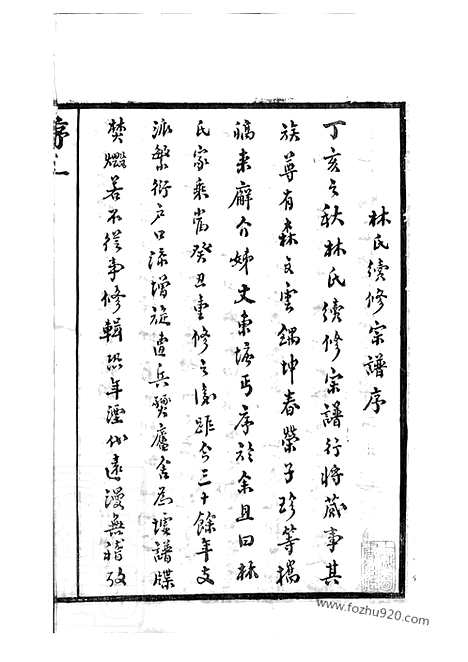 林氏續修宗譜序
丁亥之秋林氏續修宗譜行將蕆事其
族尊有森文雲錫坤春榮子珍等携
稿來廨介姊丈東塘丐序於余且曰林
氏家乘當癸丑重修之後距今三十餘年支
派繁衍戶口添增旋遭兵燹廬舍為墟譜牒
焚燬若不從事修輯恐年湮代遠漫無稽攷
序之
www.fozhu920.com